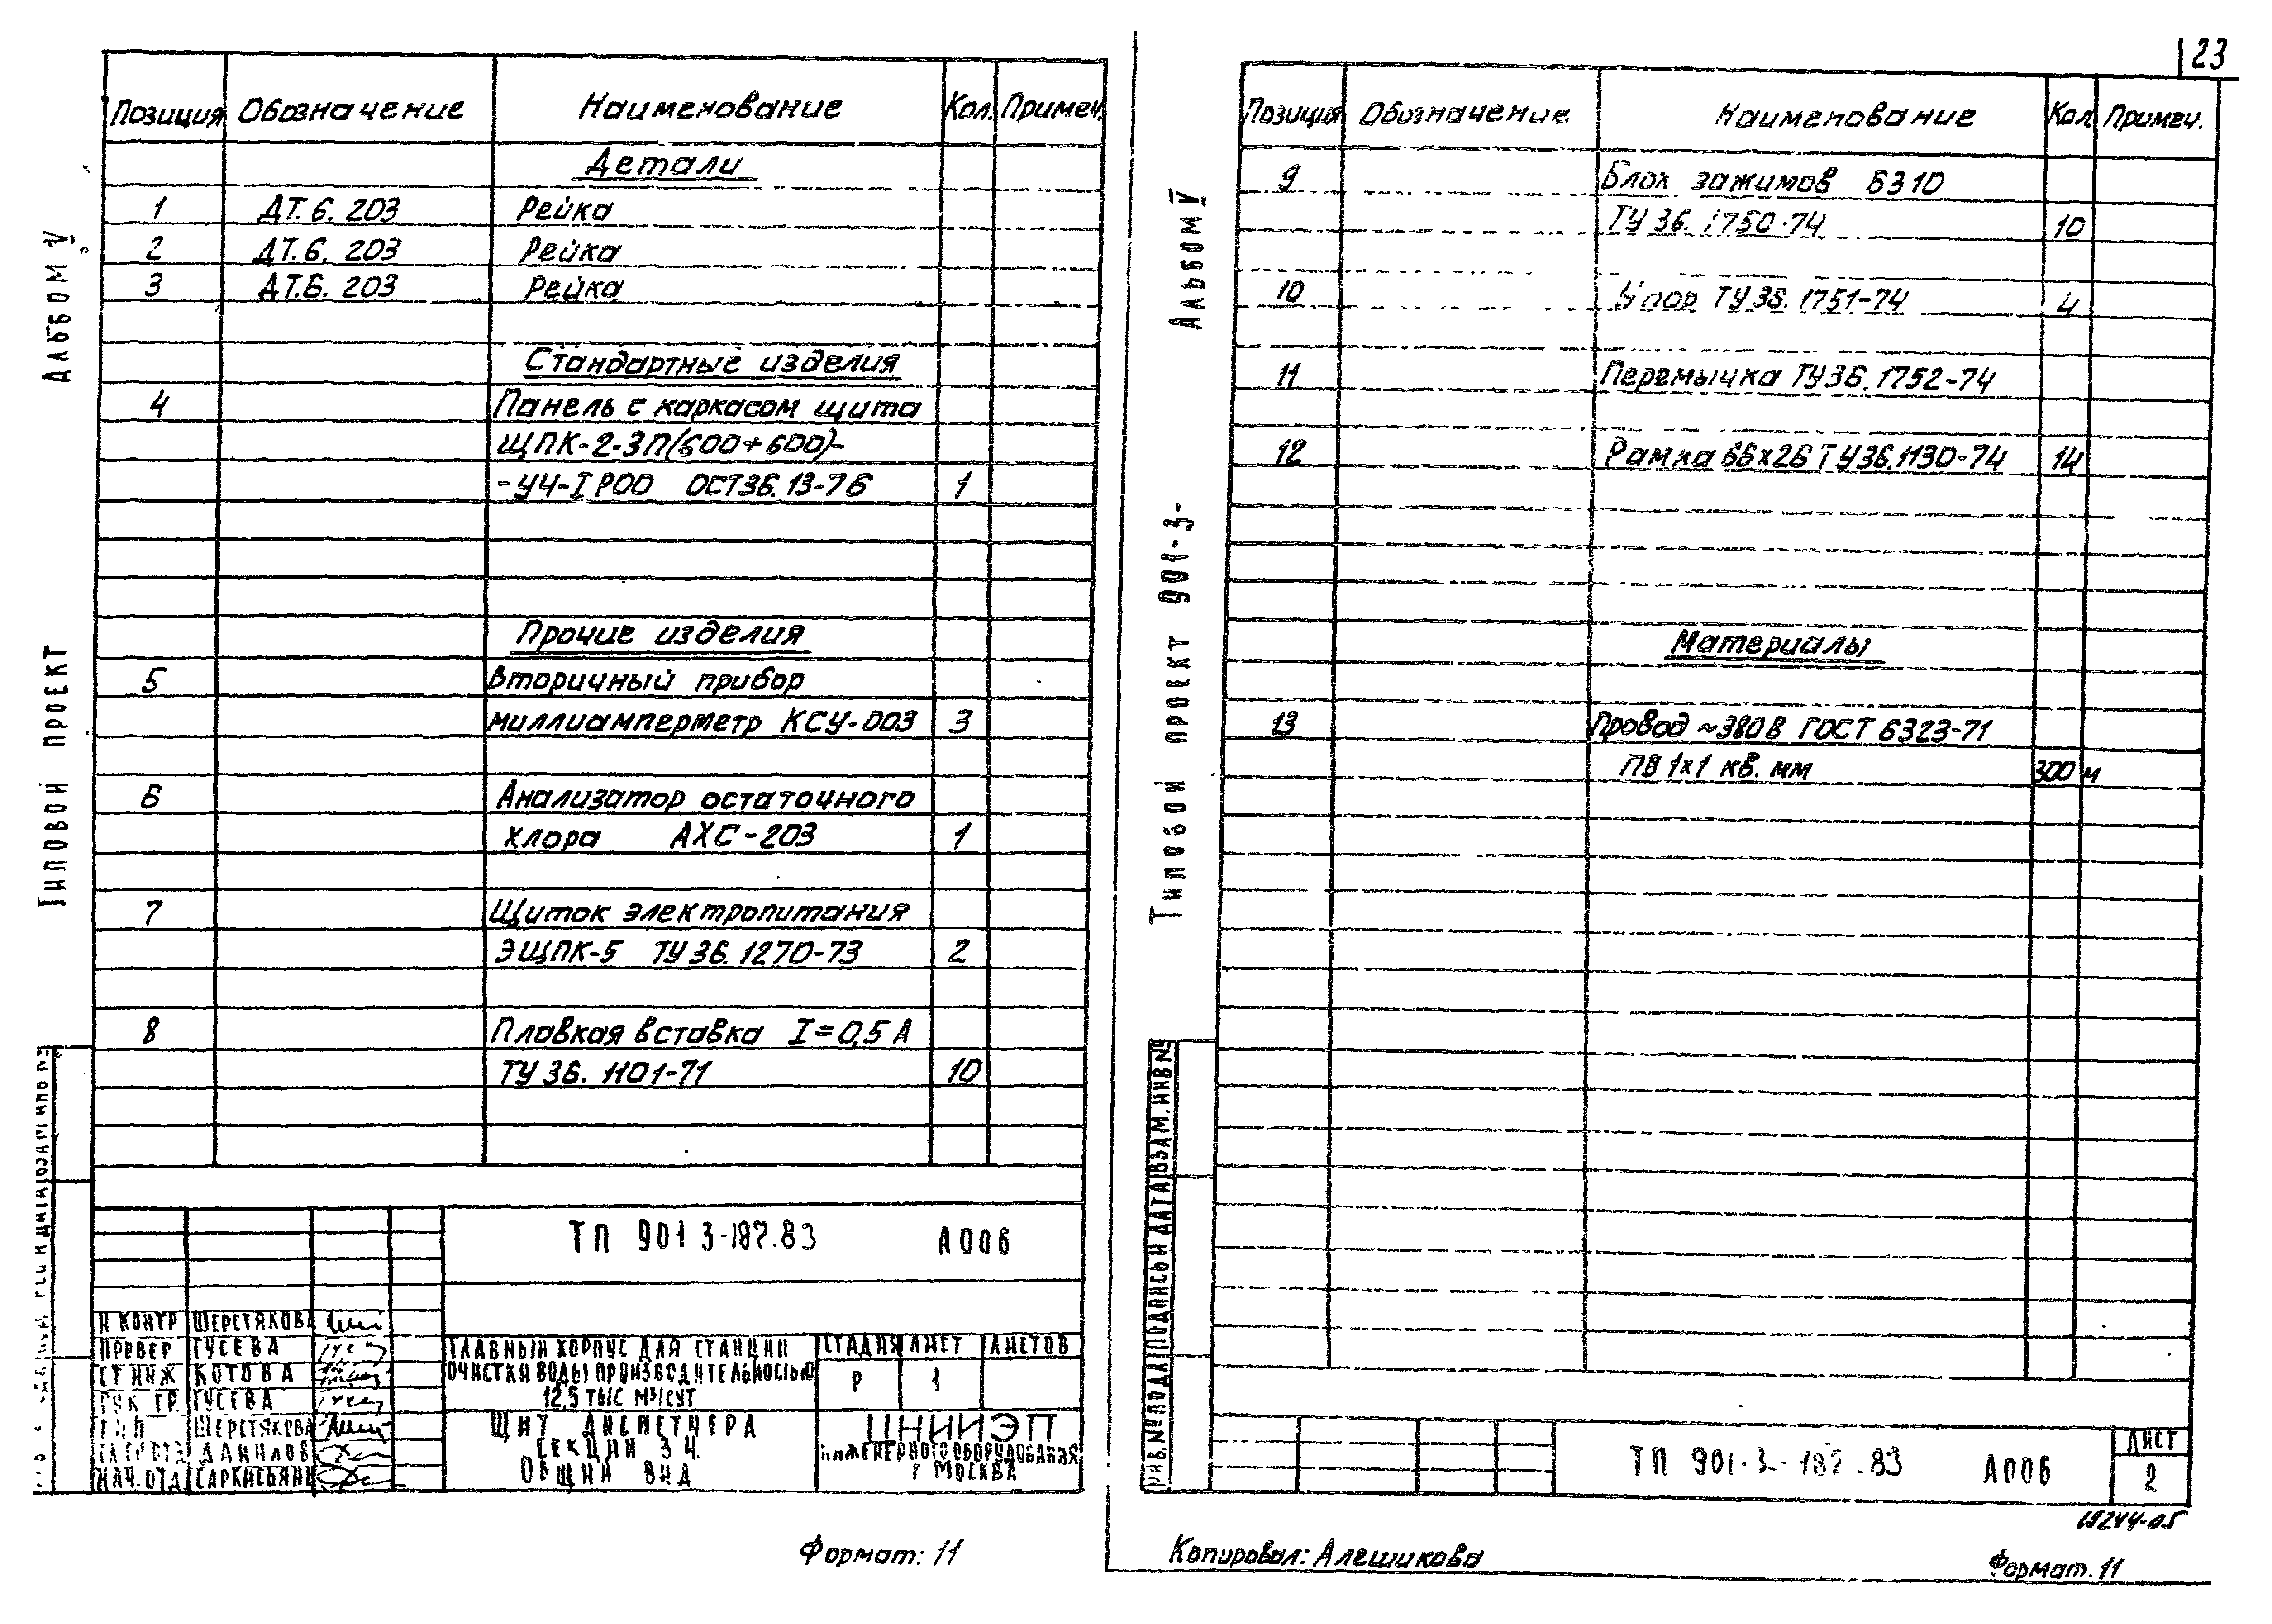 23
Альбом V
Типовой проект
Позиция Обозначение Наименование Кол. Примеч.
Детали
1 ДТ.6.203 Рейка
2 ДТ.6.203 Рейка
3 ДТ.6.203 Рейка
Стандартные изделия
4 Панель с каркасом щита
ЩПК-2-ЗП(600+600)-
-УЧ-IР00 ОСТ36.13-76 1
Прочие изделия
5 Вторичный прибор
миллиамперметр КСУ-003 3
6 Анализатор остаточного
хлора АХС-203 1
7 Щиток электропитания
ЭЩПК-5 ТУ 36.1270-73 2
8 Плавкая вставка I=0,5 А
ТУ 36.1101-71 10
ТП 901 3-187.83 А006
Н КОНТР ШЕРСТЯКОВА
ПРОВЕР ГУСЕВА
СТ ИНЖ КОТОВА
РУК ГР. ГУСЕВА
ГИП ШЕРСТЯКОВА
ДАНИЛОВ
НАЧ.ОТД САРКИСЬЯНЦ
ГЛАВНЫЙ КОРПУС ДЛЯ СТАНЦИИ
ОЧИСТКИ ВОДЫ ПРОИЗВОДИТЕЛЬНОСТЬЮ
12,5 ТЫС М3/СУТ
СТАДИЯ ЛИСТ ЛИСТОВ
Р 1
ЩИТ ДИСПЕТЧЕРА
СЕКЦИИ 3 Ч.
ОБЩИЙ ВИД
ЦНИИЭП
ИНЖЕНЕРНОГО ОБОРУДОВАНИЯ
Г МОСКВА
Формат: 11
Альбом V
Типовой проект 901-3-
Позиция Обозначение Наименование Кол. Примеч.
9 Блок зажимов БЗ10
ТУ 36.1750-74 10
10 Упор ТУ 36.1751-74 4
11 Перемычка ТУ 36.1752-74
12 Рамка 66х26 ТУ 36.1130-74 14
Материалы
13 Провод ~380В ГОСТ 6323-71
ПВ 1х1 кв. мм 300 м
ИНВ.№ПОДЛ ПОДПИСЬ И ДАТА ВЗАМ.ИНВ№
ТП 901-3-187.83 А006
ЛИСТ
2
19244-05
Копировал: Алешикова
Формат. 11